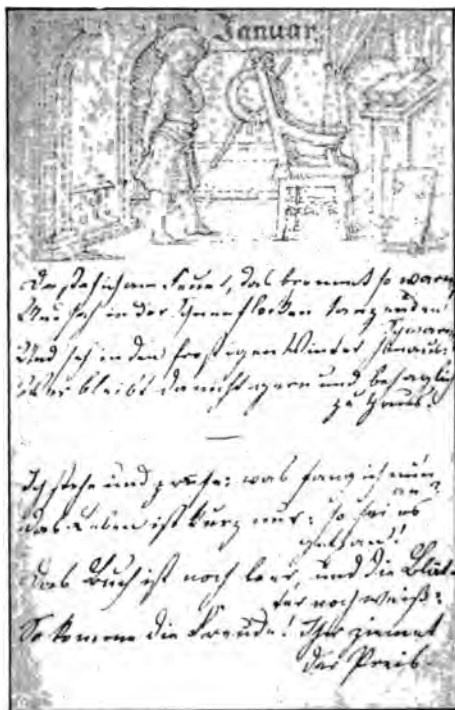 Januar
Da steh ich am Feuer, das brennt so warm,
Und seh in der Schneeflocken tanzenden
Schwarm
Und seh in den frostigen Winter hinaus:
Wer bleibt da nicht gern und behaglich
zu Haus!
Ich stehe und prüfe: was fang ich nun
an?
Das Leben ist kurz nur: so sei es
gethan!
Das Buch ist noch leer, und die Blät-
ter noch weiß:
So komme die Freude! Ihr ziemet
der Preis.